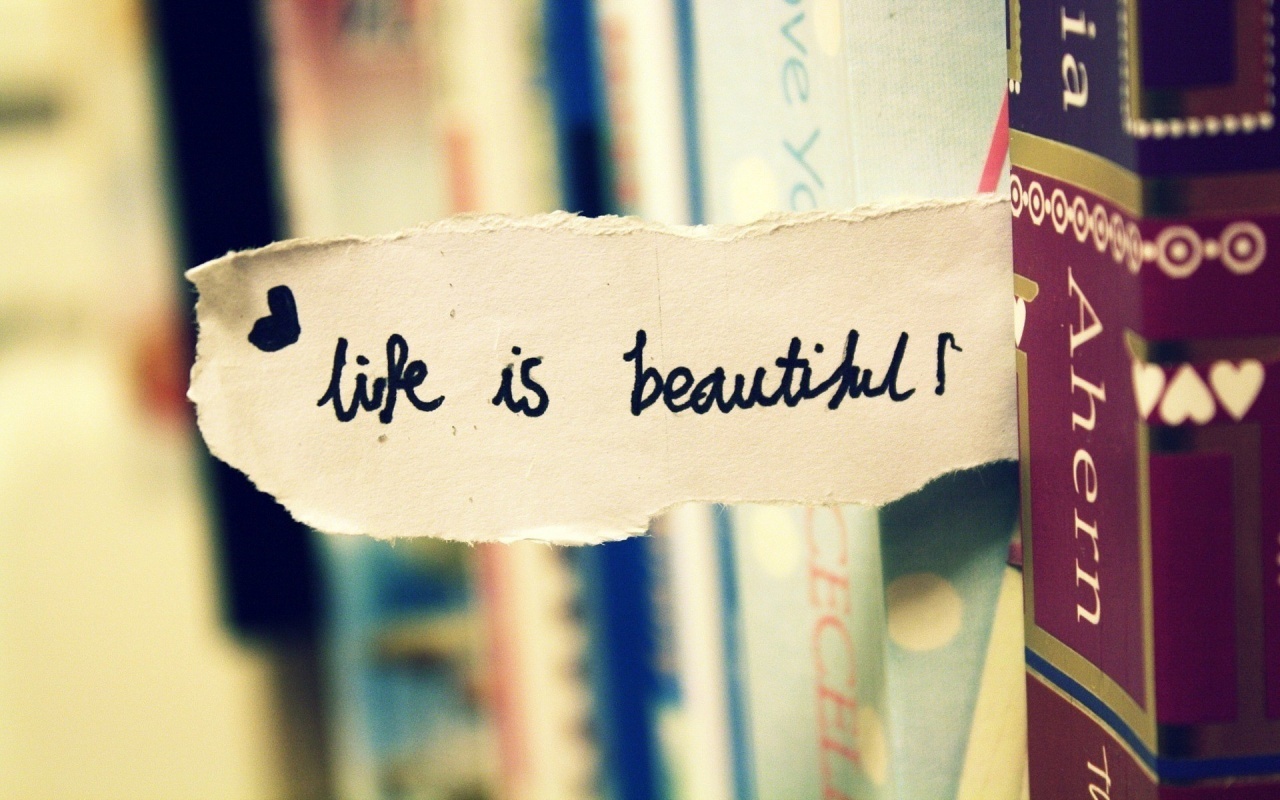 life is beautiful!
ove Yo
CECEL
ia
Ahern